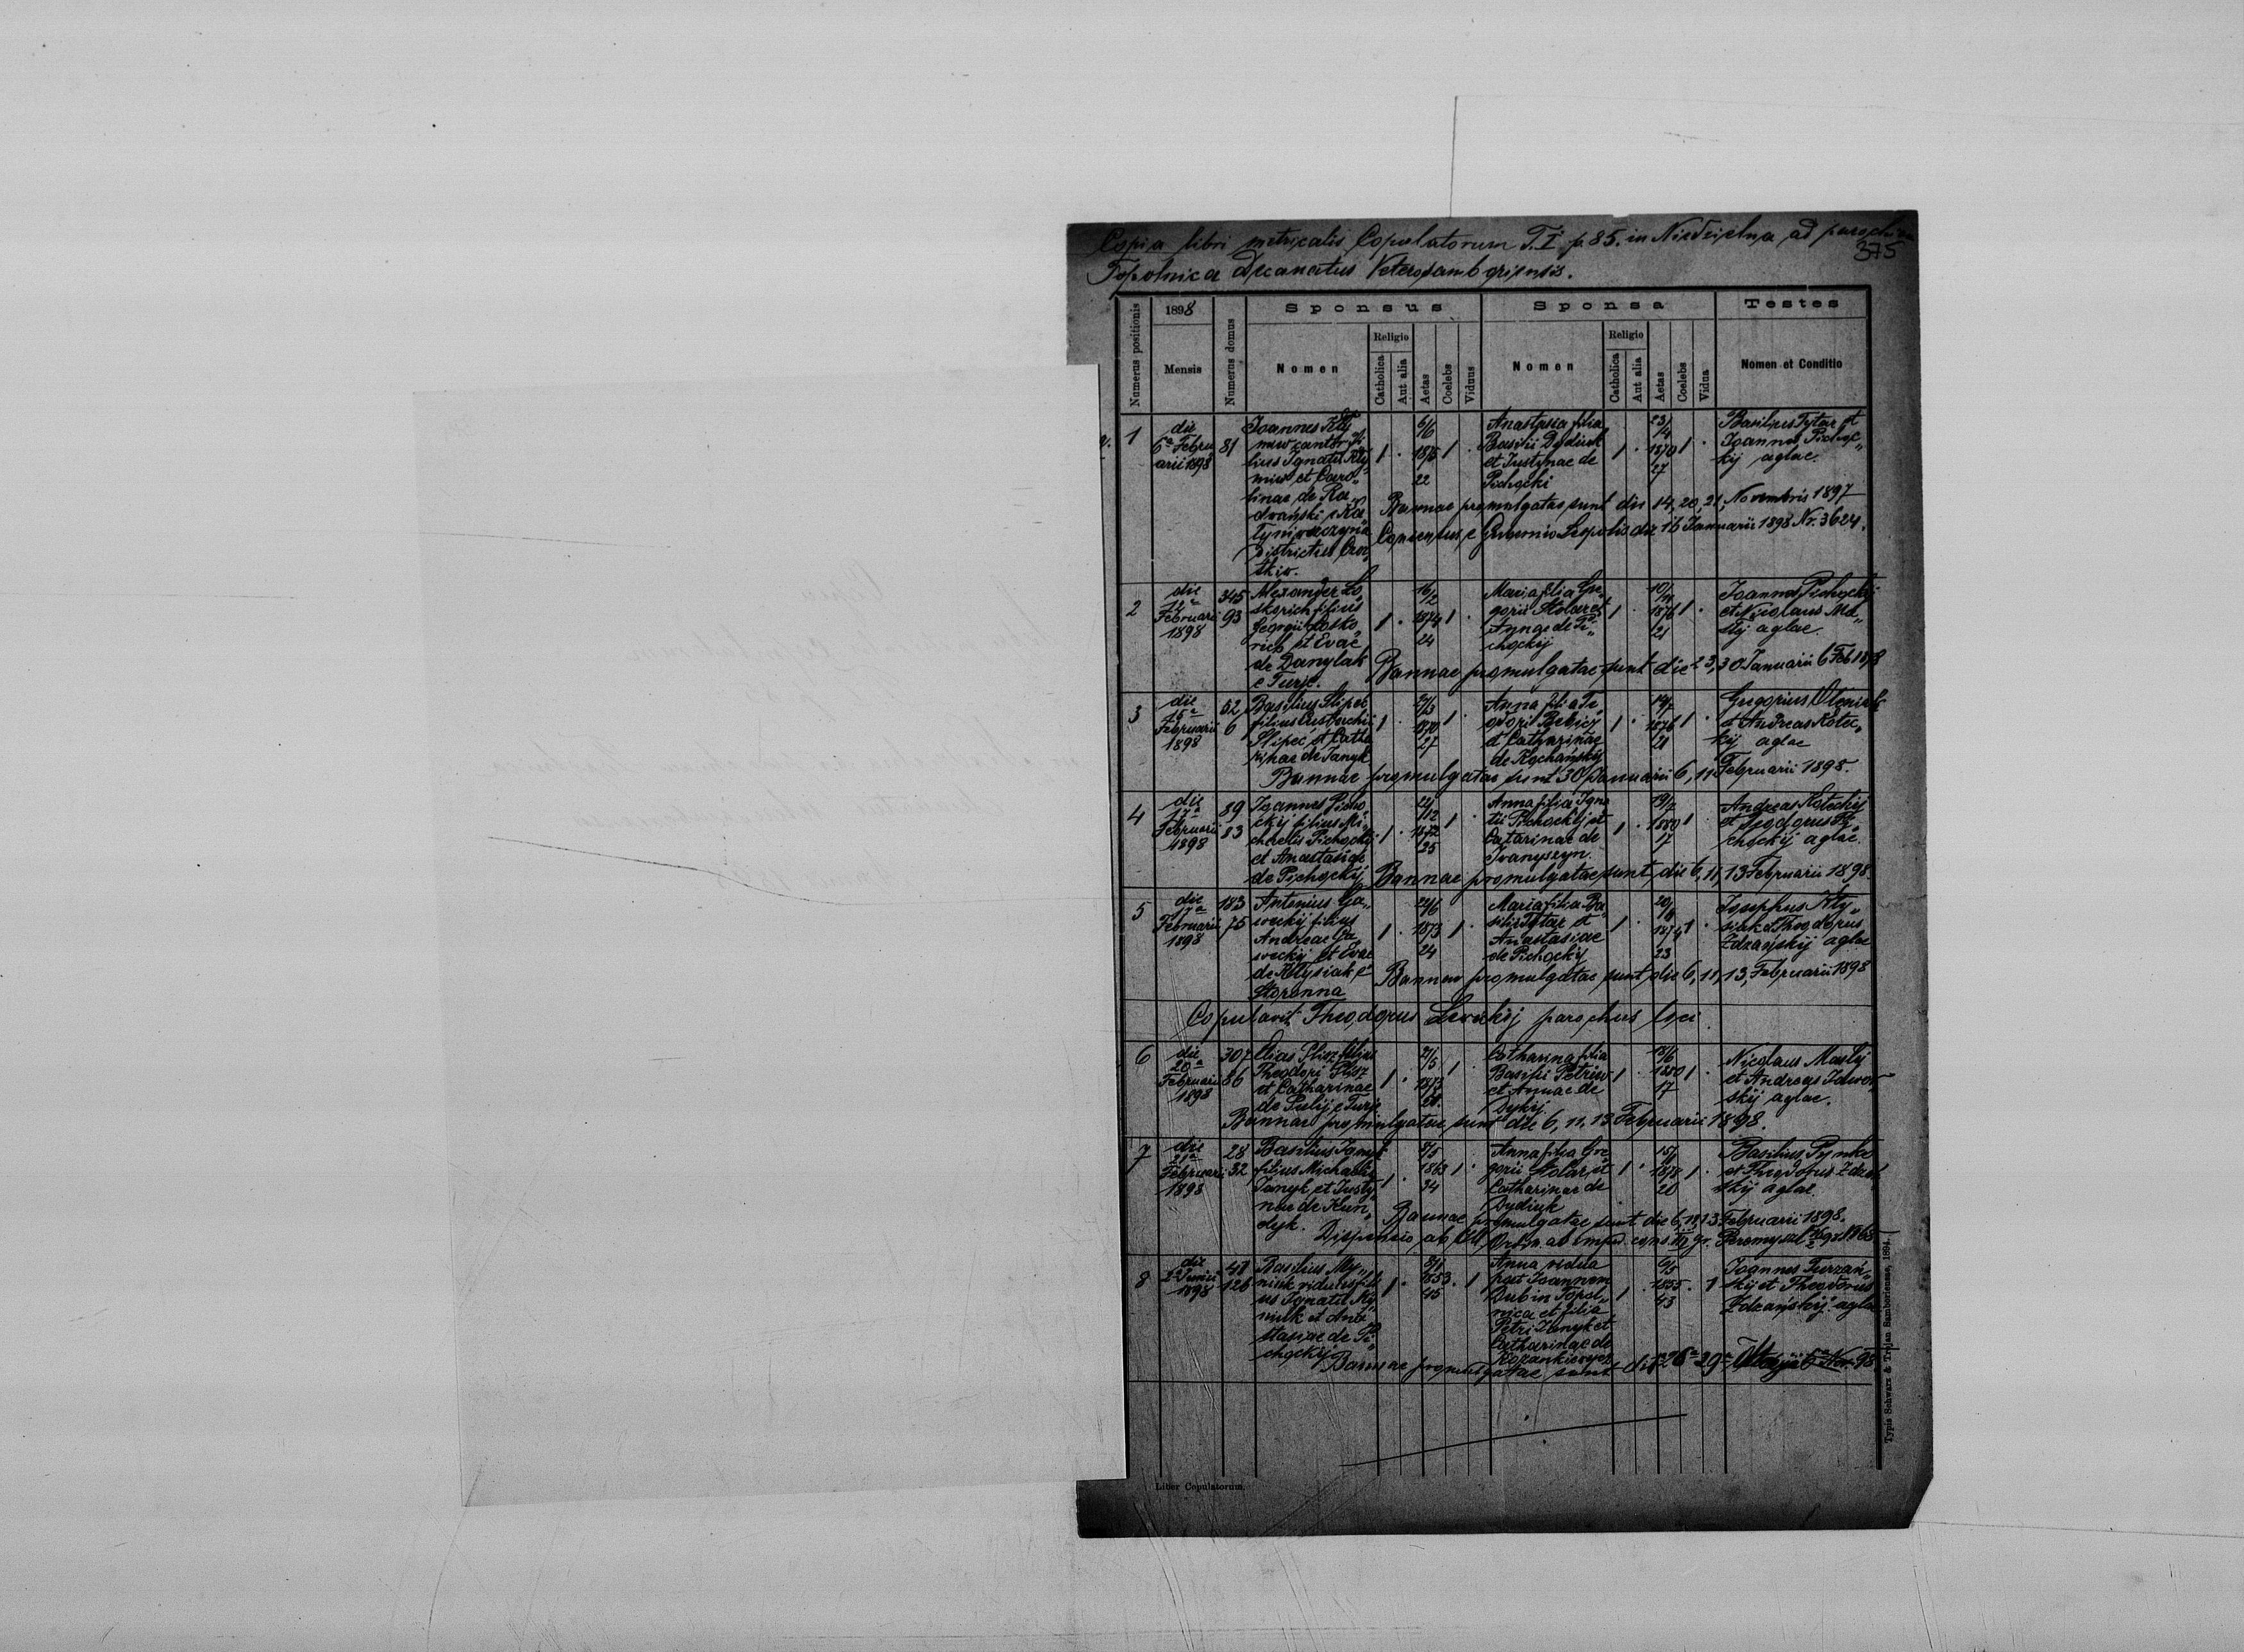 Copia libri metricalis Copulatorum T. I p. 85. in Niedzielna ad parochiam
375
Topolnica Decanatus Veterosamboriensis.
Numerus positionis
1898
Mensis
Numerus domus
Sponsus
Nomen
Religio
Catholica
Aut alia
Aetas
Coelebs
Viduus
Sponsa
Nomen
Religio
Catholica
Aut alia
Aetas
Coelebs
Vidua
Testes
Nomen et Conditio
1
die
6a Febru
arii 1898
81
Joannes
cantor fi
lius Ignatii
et Caro
linae de
districtus
1 . 6/6 1875 22 1 .
Anastasia filia
Basilii Dydiuk
et Justynae de
Pichocki
1 . 23/4 1870 27 1 .
Basilius Tytar et
Joannes Pichoc„
kij aglae.
Bannae promulgatae sunt die 14, 20, 21, Novembris 1897
Consensus e Gubernio Leopolis die 16 Januarii 1898 Nr. 3624.
2
die
Februarii
1898
345
93
Alexander Lo„
skorich filius
Georgii Losko„
rich et Evae
de Danylak
e Turje.
1 . 16/2 1874 24 1 .
Maria filia Gre„
gorii Stolar et
de Pi„
chockij
1 . 1876 21 1 .
Joannes Pichockij
et Nicolaus Ma„
slij aglae.
Bannae promulgatae sunt die 23, 30 Januarii 6 Feb 1898
3
die
15a
Februarii
1898
52
6
Basilius Slipec
filius Eustachii
Slipec et Catha
rinae de Janyk
1 . 1870 27 1 .
Anna filia Te„
odori Bekicz
et Catharinae
de Kochański
1 . 1876 21 1 .
Gregorius
et Andreas Kotec„
kij aglae
Bannae promulgatae sunt 30 Januarii 6, 11 Februarii 1898.
4
die
17a
Februarii
1898
89
83
Joannes Picho
ckij filius Mi„
chaelis Pichockij
et Anastasiae
de Pichockij
1 . 1872 25 1 .
Anna filia Igna
tii Pichockij et
Catarinae de
Iwanyszyn.
1 . 19/7 1880 17 1 .
Andreas Koteckij
et Teodorus Pi„
chockij aglae.
Bannae promulgatae sunt die 6, 11, 13 Februarii 1898.
5
die
17a
Februarii
1898
183
75
Antonius Ga„
weckij filius
Andreae Ga„
weckij et Evae
de Klysiak e
Storonna
1 . 1873 24 1 .
Maria filia Ba„
silii Tytar et
Anastasiae
de Pichockij
1 . 1874 23 1 .
Josephus Kly„
siak et Theodorus
Zdzańskij aglae
Bannae promulgatae sunt die 6, 11, 13, Februarii 1898
Copulavit Theodorus Lewickij parochus loci.
6
die
20a
Februarii
1898
307
86
Elias Plisz filius
Theodori Plisz
et Catharinae
de e Turje
1 . 1873 1 .
Catharina filia
Basilii Petriw
et Annae de
Dykij.
1 . 18/6 1880 17 1 .
Nicolaus Maslij
et Andreas
skij aglae.
Bannae promulgatae sunt die 6, 11, 13 Februarii 1898.
7
die
21a
Februarii
1898
28
32
Basilius Janyk
filius Michaelis
Janyk et Justy„
nae de Kun„
dyk.
1 . 1863 34 1 .
Anna filia Gre
gorii Stolar et
Catharinae de
Dydiuk
1 . 1878 20 1 .
Basilius Pynka
et Theodorus Zdzań
skij aglae.
Bannae promulgatae sunt die 6, 11, 13 Februarii 1898.
Dispensio ab
8
die
2a Junii
1898
41
126
Basilius My„
niuk viduus fili
us Ignatii My„
niuk et Ana
stasiae de Pi„
chockij
1 . 8/1 1853 45 . 1
Anna vidua
post Joannem
Dub in Topol„
nica et filia
Petri Janyk et
Catharinae de
1 . 1855 43 . 1
Joannes Turzań„
skij et Theodorus
Zdzańskij aglae
Bannae promulgatae sunt die 26a 29a
Liber Copulatorum.
Typis Schwarz & Trojan Samboriensis, 1894.